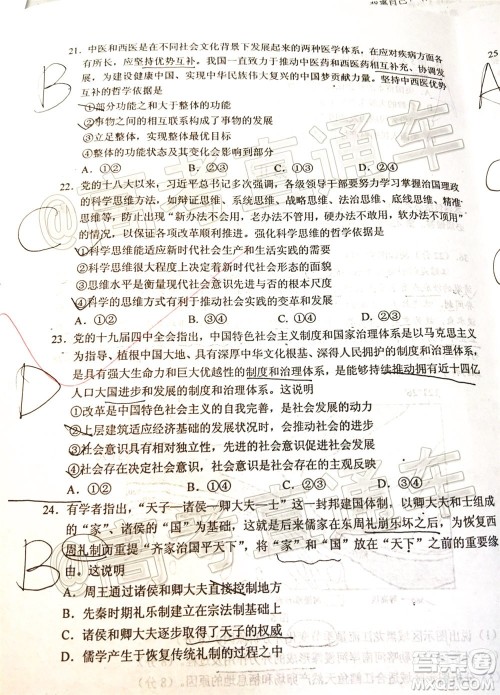 21. 中医和西医是在不同社会文化背景下发展起来的两种医学体系，在应对疾病方面各有
所长，应坚持优势互补。我国一直致力于推动中医药和西医药相互补充、协调发展，
为建设健康中国、实现中华民族伟大复兴的中国梦贡献力量。坚持中西医优势
互补的哲学依据是
①部分功能之和大于整体的功能
②事物之间的相互联系构成了事物的发展
③立足整体，实现整体最优目标
④整体的功能状态及其变化会影响到部分
A．①② B．①③ C．②④ D．③④
22. 党的十八大以来，习近平总书记多次强调，各级领导干部要努力学习掌握治国理政
的科学思维方法，如战略思维、辩证思维、系统思维、法治思维、底线思维、精准
思维等，防止出现"新办法不会用，老办法不管用，硬办法不敢用，软办法不顶用"
的情况，以保证各项改革顺利推进。强化科学思维的哲学依据是
①科学思维能适应新时代社会生产和生活实践的需要
②科学思维很大程度上决定着新时代社会形态的面貌
③思维水平是衡量现代社会意识先进与否的根本尺度
④科学的思维方式有利于推动社会实践的变革和发展
A．①② B．②③ C．①④ D．③④
23. 党的十九届四中全会指出，中国特色社会主义制度和国家治理体系是以马克思主义
为指导、植根中国大地、具有深厚中华文化根基、深得人民拥护的制度和治理体系，
是具有强大生命力和巨大优越性的制度和治理体系，是能够持续推动拥有近十四亿
人口大国进步和发展的制度和治理体系。这说明
①改革是中国特色社会主义的自我完善，是社会发展的动力
②上层建筑适应经济基础的发展状况时，就会推动社会发展
③社会意识具有相对独立性，先进的社会意识促进社会发展
④社会存在决定社会意识，社会意识是社会存在的主观反映
A．①② B．①③ C．②④ D．②③
24. 有学者指出，"天子—诸侯—卿大夫—士"这一封邦建国体制，以及由卿大夫和士组成
的"家"，诸侯的"国"为这一体制的基础，是后来儒家在东周礼崩乐坏之后，为恢复西
周礼制而重提"齐家治国平天下"，将"家"和"国"放在"天下"之前的更重要缘
由。这说明
A．周王通过诸侯和卿大夫直接控制地方
B．先秦时期礼乐制建立在宗法制基础上
C．诸侯和卿大夫逐步取得了天子的权威
D．儒学产生于恢复传统礼制的过程之中
B
C
D
B